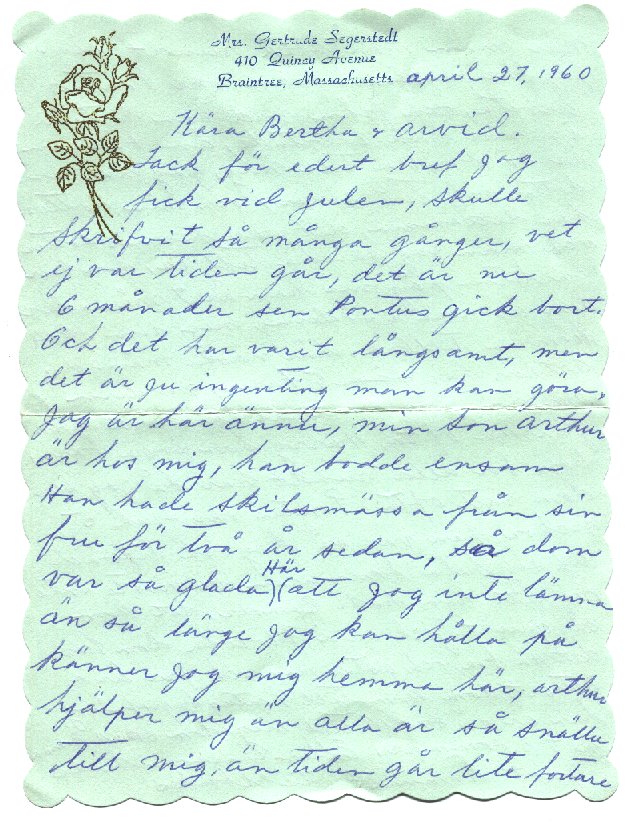 Mrs. Gertrude Segerstedt
410 Quincy Avenue
Braintree, Massachusetts april 27, 1960
Kära Bertha & Arvid.
Tack för edert bref jag
fick vid julen, skulle
skrifvit så många gånger, vet
ej var tiden går, det är nu
6 månader sen Pontus gick bort.
Och det har varit långsamt, men
det är ju ingenting man kan göra,
Jag är här ännu, min son Arthur
är hos mig, han bodde ensam
Han hade skilsmässa från sin
fru för två år sedan, så dom
var så glada) Här (att jag inte lämna
än så länge jag kan hålla på
känner jag mig hemma här, arthur
hjälper mig än alla är så snälla
till mig, än tiden går lite fortare